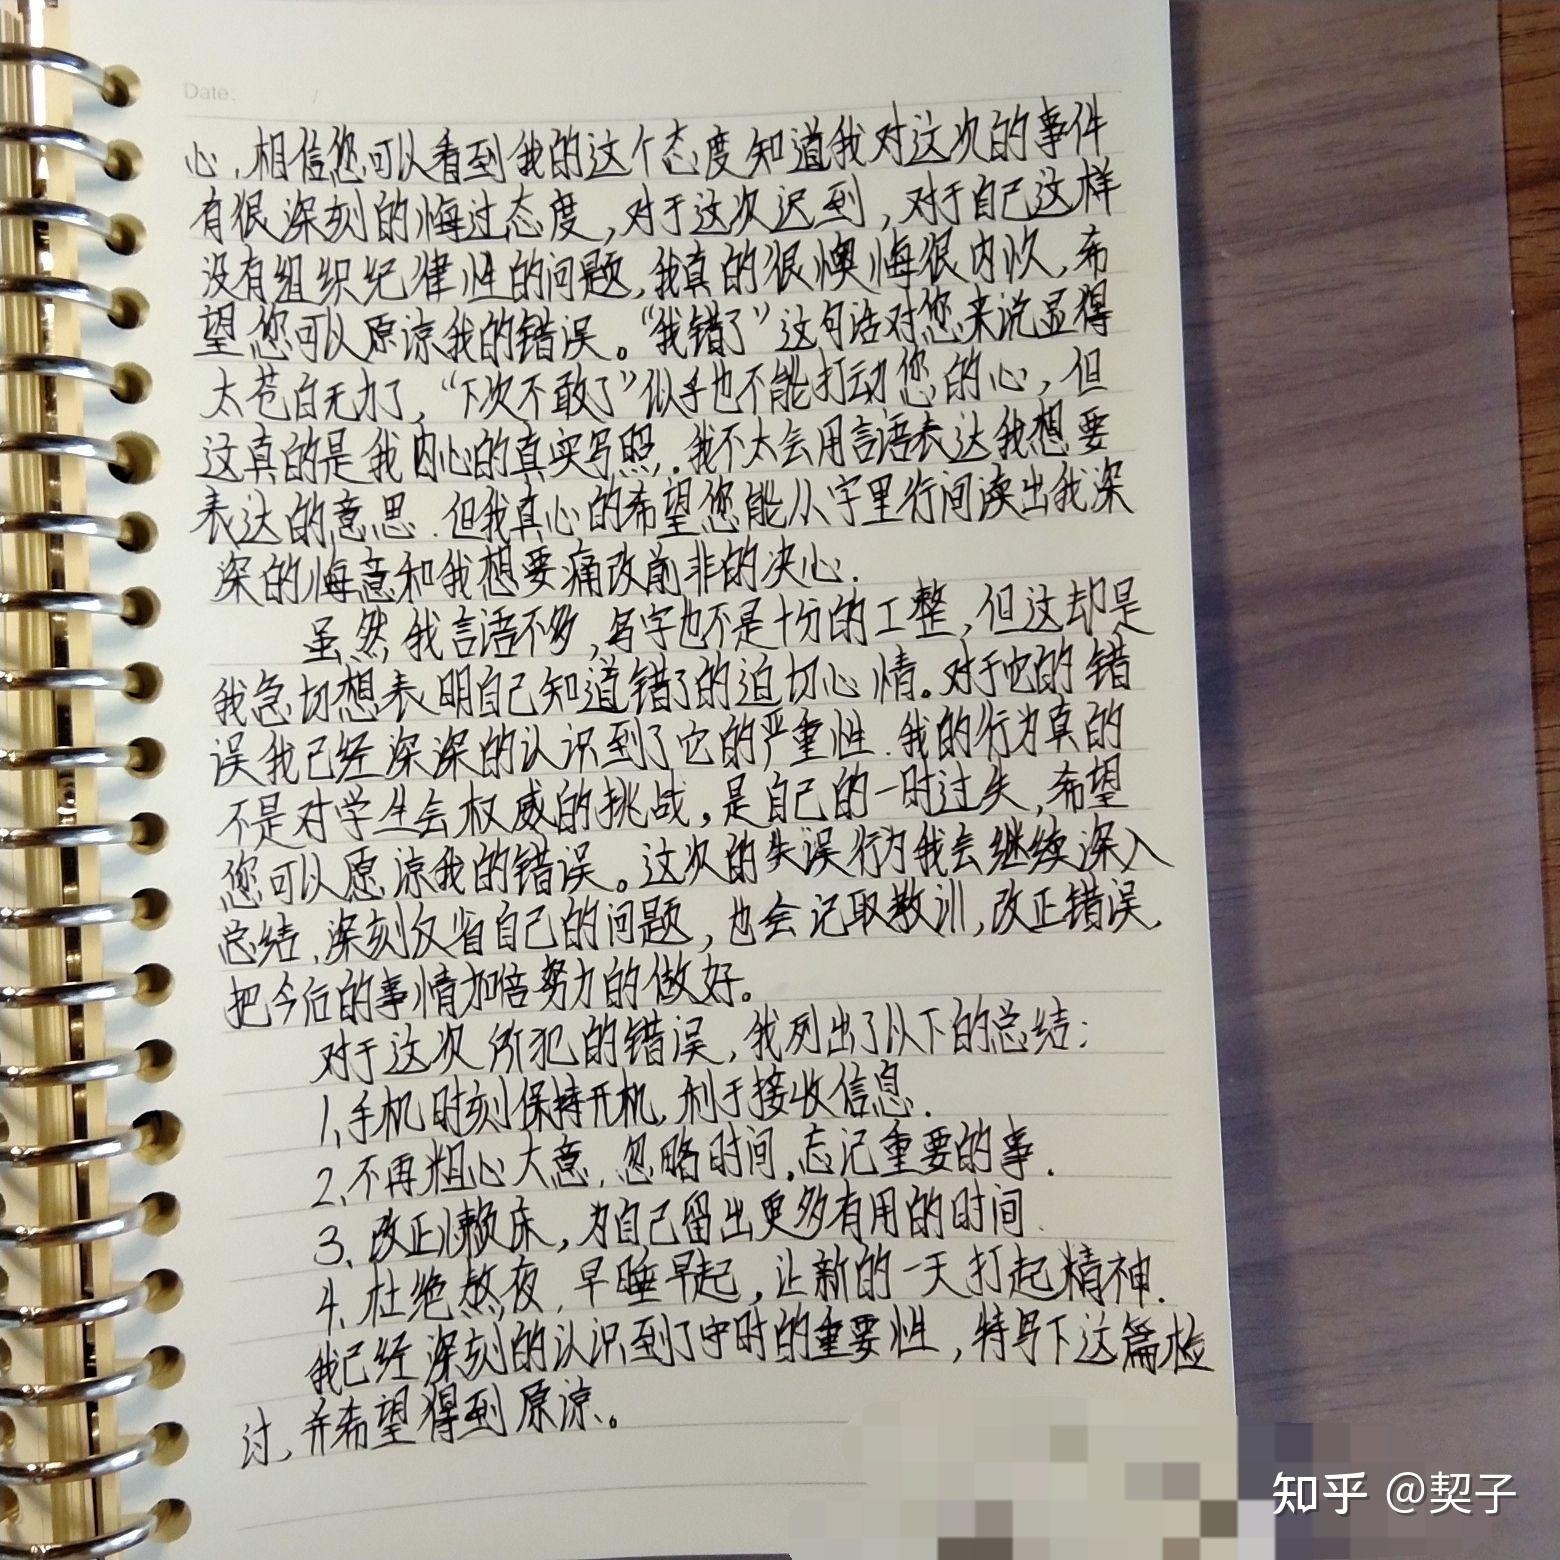 Date. /
心,相信您可以看到我的这个态度知道我对这次的事件
有很深刻的悔过态度,对于这次迟到,对于自己这样
没有组织纪律性的问题,我真的很懊悔很内疚,希
望您可以原谅我的错误。“我错了”这句话对您来说显得
太苍白无力了,“下次不敢了”似乎也不能打动您的心,但
这真的是我内心的真实写照.我不太会用言语表达我想要
表达的意思.但我真心的希望您能从字里行间读出我深
深的悔意和我想要痛改前非的决心.
虽然我言语不多,写字也不是十分的工整,但这却是
我急切想表明自己知道错了的迫切心情。对于它的错
误我已经深深的认识到了它的严重性.我的行为真的
不是对学生会权威的挑战,是自己的一时过失,希望
您可以原谅我的错误。这次的失误行为我会继续深入
总结,深刻反省自己的问题,也会记取教训,改正错误.
把今后的事情加倍努力的做好。
对于这次所犯的错误,我列出了以下的总结:
1、手机时刻保持开机,利于接收信息.
2、不再粗心大意,忽略时间,忘记重要的事.
3、改正懒床,为自己留出更多有用的时间.
4、杜绝熬夜,早睡早起,让新的一天打起精神.
我已经深刻的认识到了守时的重要性,特写下这篇检
讨,并希望得到原谅。
知乎 @契子